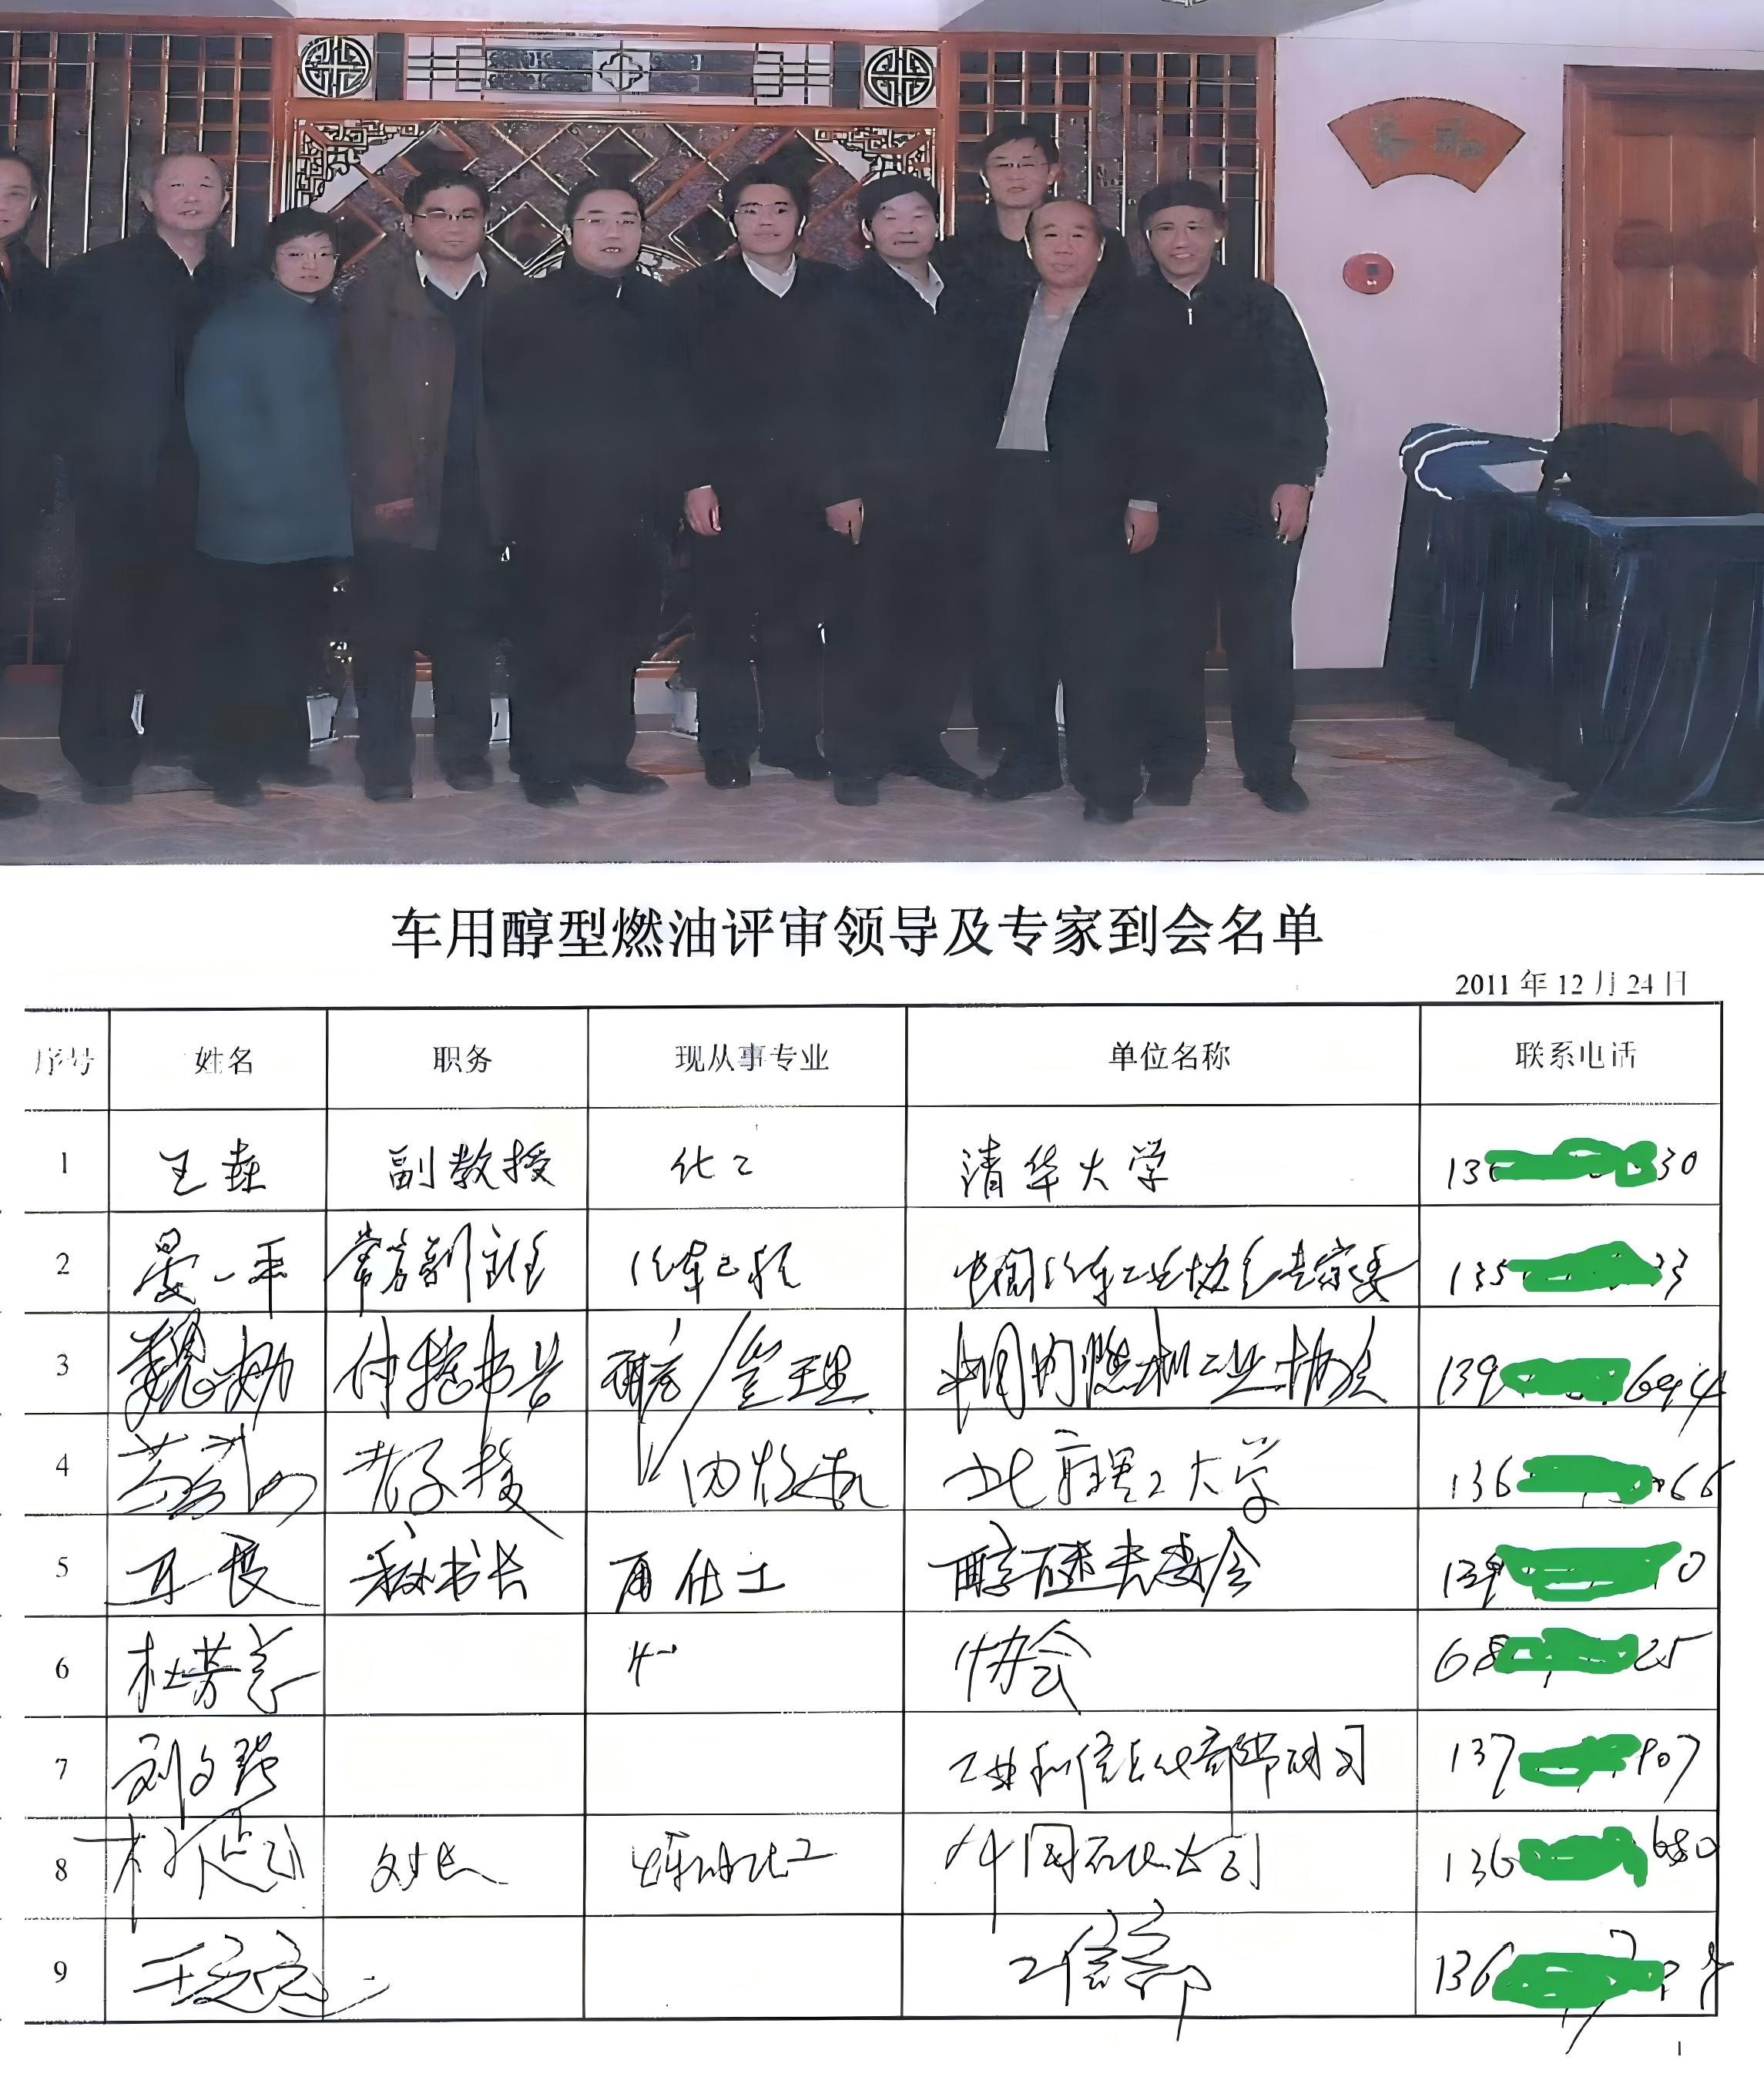 车用醇型燃油评审领导及专家到会名单
2011年12月24日
序号 姓名 职务 现从事专业 单位名称 联系电话
1 王垚 副教授 化工 清华大学 136 30
2 晏一平 常务副主任 汽车工程 中国汽车工业协会专家委 135 33
3 魏 付秘书长 /管理 中国内燃机工业协会 139 6994
4 教授 内燃机 北京理工大学 136 66
5 秘书长 化工 醇醚专委会 139 0
6 杜芳 化 协会 68 25
7 刘文强 工业和信息化部节能司 137 907
8 处长 炼油化工 中国石化公司 136 680
9 王 工信部 136
1